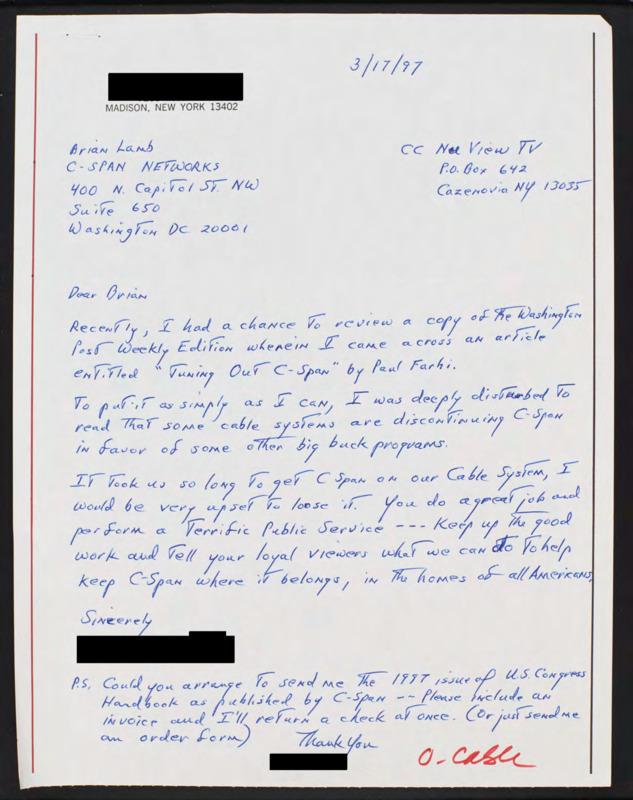 3/17/97
MADISON, NEW YORK 13402
Brian Lamb
C-SPAN NETWORKS
400 N. Capitol ST. NW
Suite 650
Washington DC 20001
CC New View TV
P.O. Box 642
Cazenovia NY 13035
Dear Brian
Recently, I had a chance to review a copy of The Washington
Post Weekly Edition wherein I came across an article
entitled "Tuning Out C-Span" by Paul Farhi.
To put it as simply as I can, I was deeply disturbed to
read that some cable systems are discontinuing C-Span
in favor of some other big buck programs.
It took us so long to get C Span on our Cable System, I
would be very upset to loose it. You do a great job and
perform a Terrific Public Service --- Keep up the good
work and tell your loyal viewers what we can do to help
keep C-Span where it belongs, in the homes of all Americans.
Sincerely
P.S. Could you arrange to send me the 1997 issue of U.S. Congress
Handbook as published by C-Span -- Please include an
invoice and I'll return a check at once. (Or just send me
an order form) Thank You
O-Cable